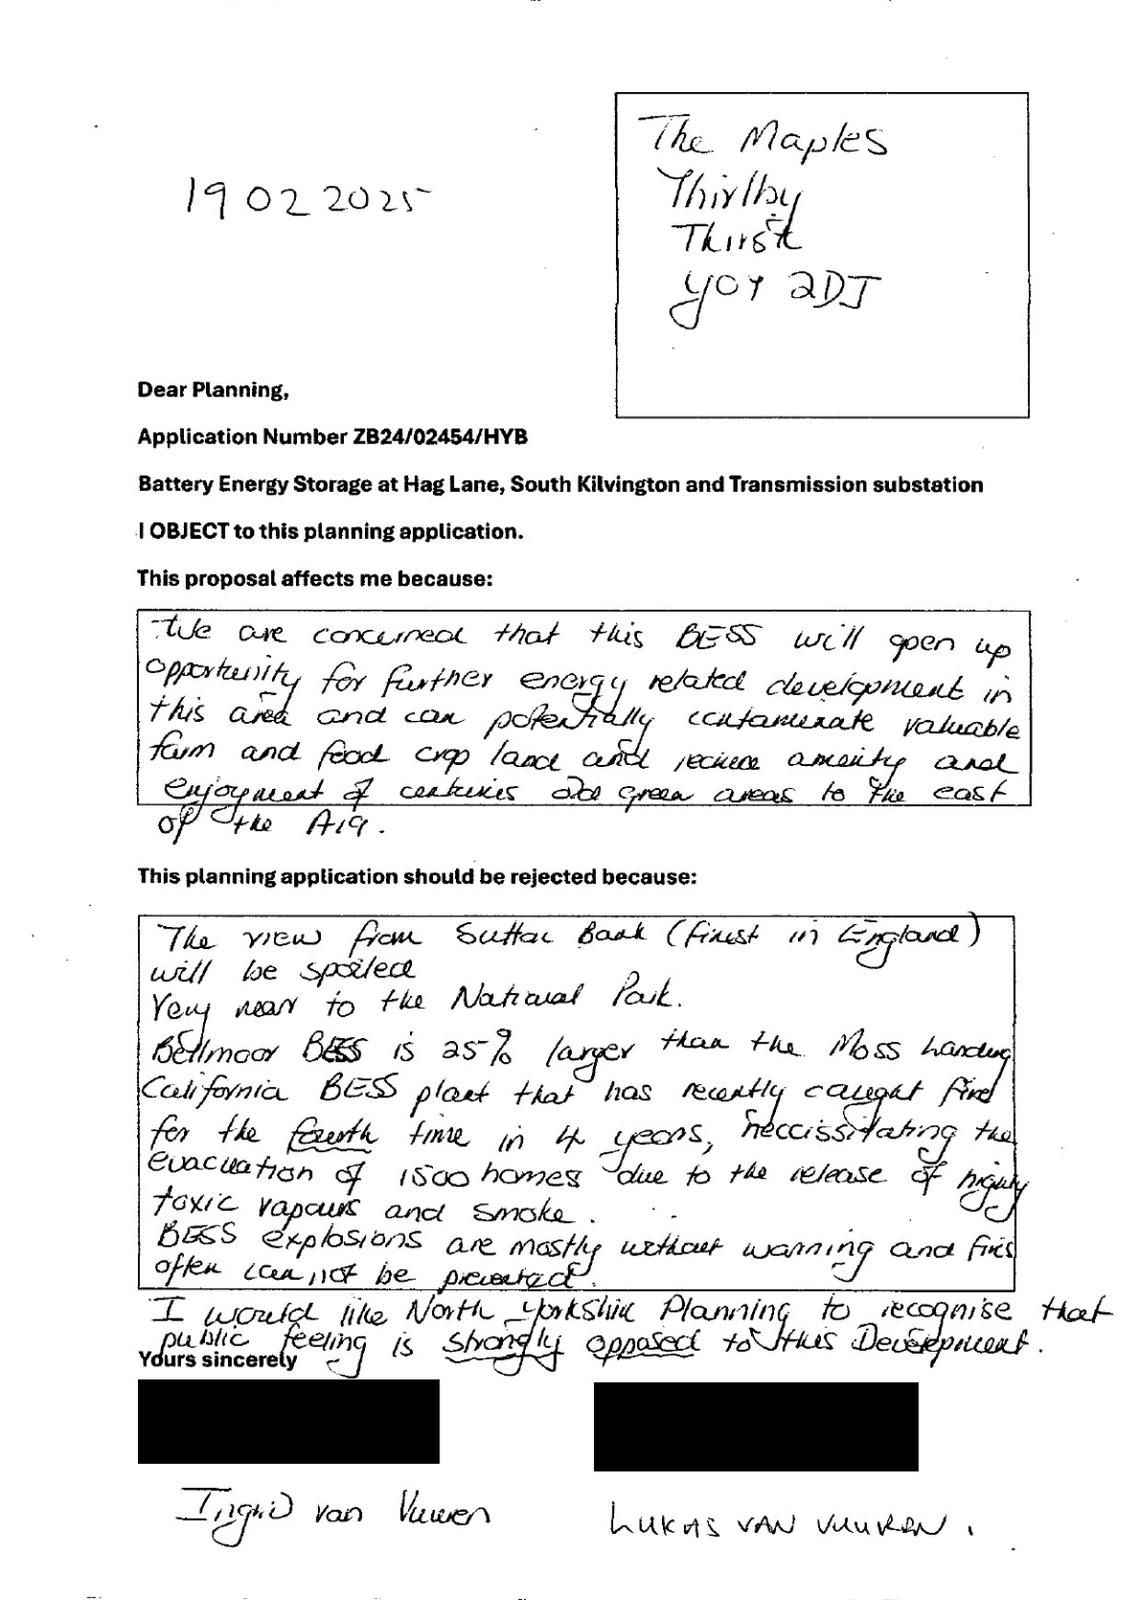 The Maples
Thirlby
Thirsk
YO7 2DJ
19 02 2025
Dear Planning,
Application Number ZB24/02454/HYB
Battery Energy Storage at Hag Lane, South Kilvington and Transmission substation
I OBJECT to this planning application.
This proposal affects me because:
We are concerned that this BESS will open up
opportunity for further energy related development in
this area and can potentially contaminate valuable
farm and food crop land and reduce amenity and
enjoyment of centuries old green areas to the east
of the A19.
This planning application should be rejected because:
The view from Sutton Bank (finest in England)
will be spoiled
Very near to the National Park.
Bellmoor BESS is 25% larger than the Moss Landing
California BESS plant that has recently caught fire
for the fourth time in 4 years, neccissitating the
evacuation of 1500 homes due to the release of highly
toxic vapours and smoke.
BESS explosions are mostly without warning and fires
often can not be prevented.
I would like North Yorkshire Planning to recognise that
public feeling is strongly opposed to this Development.
Yours sincerely
Ingrid van Vuuren
LUKAS VAN VUUREN.